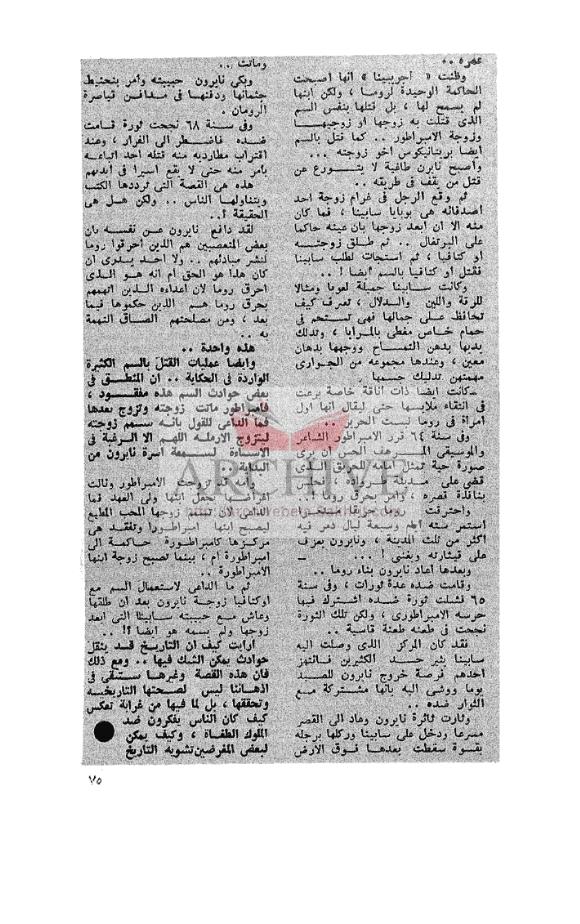 عمره ..
وظنت « أجريبينا » انها أصبحت
الحاكمة الوحيدة لروما ، ولكن ابنها
لم يسمح لها ، بل قتلها بنفس السم
الذى قتلت به زوجها أو زوجيهـا
وزوجة الامبراطور .. كما قتل بالسم
أيضا بريتانيكوس أخو زوجته ...
وأصبح نايرن طاغية لا يتـورع عن
قتل من يقف فى طريقه ..
ثم وقع الرجل فى غرام زوجة أحد
أصدقائه هى بوبايا سابينا ، فما كان
منه الا ان أبعد زوجها بان عينه حاكما
على البرتغال .. ثم طلق زوجتـه
أو كتافيا ، ثم استجاب لطلب سابينا
فقتل أو كتافيا بالسم أيضا ! ..
وكانت سابينا جميلة لعوبا ومثالا
للرقة واللين والدلال ، تعرف كيف
تحافظ على جمالها فهى تستحم فى
حمام خاص مغطى بالمرايا ، وتدلك
يديها بدهن التمساح ووجهها بدهان
معين ، وعندها مجموعة من الجوارى
مهمتهن تدليك جسمها .
كانت أيضا ذات أناقة خاصة برعت
فى انتقاء ملابسها حتى ليقال انها أول
امرأة فى روما لبست الحرير ..
وفى سنة ٦٤ قرر الامبراطور الشاعر
والموسيقى المرهف الحس أن يرى
صورة حية تمثل أمامه للحريق الذى
قضى على مدينة طروادة ، فجلس
بنافذة قصره ، وأمر بحرق روما !
واحترقت
استمر ستة أيام وسبعة ليال دمر فيه
أكثر من ثلث المدينة ، ونايرون يعزف
على قيثارته ويغنى ! ...
وبعدها أعاد نايرون بناء روما ..
وقامت ضده عدة ثورات ، وفى سنة
٦٥ فشلت ثورة ضده اشترك فيها
حرسه الامبراطورى ، ولكن تلك الثورة
نجحت فى طعنه طعنة قاسية ..
فقد كان المركز الذى وصلت اليه
سابينا يثير حسد الكثيرين فانتهز
أحدهم فرصة خروج نايرون للصيد
يوما ووشى اليه بانها مشتركة مع
الثوار ضده ..
وثارت ثائرة نايرون وعاد الى القصر
مسرعا ودخل على سابينا وركلها برجله
بقوة سقطت بعدها فوق الأرض
وماتت ..
وبكى نايرون حبيبته وأمر بتحنيط
جثمانها ودفنها فى مدافن قياصرة
الرومان .
وفى سنة ٦٨ نجحت ثورة قامت
ضده فاضطر الى الفرار ، وعند
اقتراب مطارديه منه قتله أحد أتباعه
بأمر منه حتى لا يقع أسيرا فى أيديهم
هذه هى القصة التى ترددها الكتب
ويتناولها الناس .. ولكن هل هى
الحقيقة ؟..
لقد دافع نايرون عن نفسه بان
بعض المتعصبين هم الذين أحرقوا روما
لنشر مبادئهم .. ولا أحد يدرى ان
كان هذا هو الحق أم انه هو الذى
أحرق روما لان أعداءه الذين اتهمهم
بحرق روما هم الذين حكموها فيما
بعد ، ومن مصلحتهم الصاق التهمة
به ..
هذه واحدة ..
وأيضا عمليات القتل بالسم الكثيرة
الواردة فى الحكاية .. ان المنطق فى
بعض حوادث السم هذه مفقود ،
فامبراطور ماتت زوجته وتزوج بعدها
فما الداعى للقول بأنه سمم زوجته
ليتزوج الارملة اللهم الا الرغبة فى
الاساءة لسمعة أسرة نايرون من
البداية .
تزوجت الامبراطور ونالت
جعل ابنها ولى العهد فما
زوجها المحب المطيع
ليصبح ابنها امبراطورا وتفقد هى
مركزها كامبراطورة حاكمة الى
امبراطورة أم ، بينما تصبح زوجة ابنها
الامبراطورة ..
ثم ما الداعى لاستعمال السم مع
أوكتافيا زوجة نايرون بعد ان طلقها
وعاش مع حبيبته سابينا التى أبعد
زوجها ولم يسمه هو أيضا ؟! ..
أرأيت كيف ان التاريخ قد ينقل
حوادث يمكن الشك فيها .. ومع ذلك
فان هذه القصة وغيرها ستبقى فى
أذهاننا ليس لصحتها التاريخية
وتحققها ، بل لما فيها من غرابة تعكس
كيف كان الناس يفكرون ضد
الملوك الطغاة ، وكيف يمكن
لبعض المغرضين تشويه التاريخ
ARCHIVE
http://Archivebeta.Sakhrit.com
٧٥